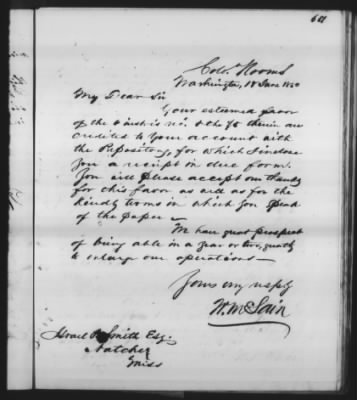 601
Colo. Rooms
Washington, 18 June 1850
My Dear Sir
Your esteemed favor
of the inst is rec. & the therein are
credited to your account with
the Repository, for which I inclose
you a receipt in due form.
You will please accept our thanks
for this favor as well as for the
kindly terms in which you speak
of the paper
We have great prospect
of being able in a year or two, greatly
to enlarge our operations
Yours very resply
W. McLain
Israel Smith Esq.
Natchez
Miss